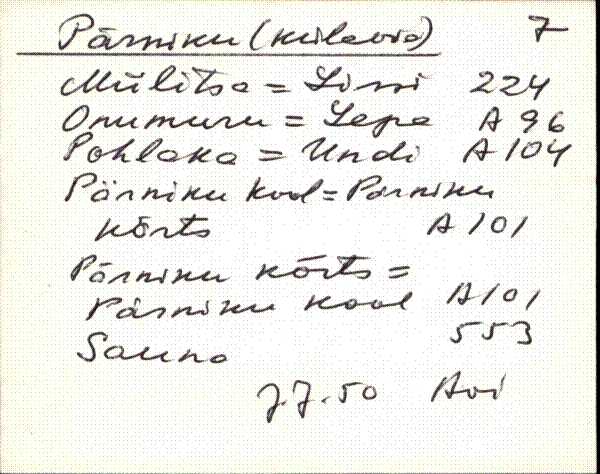 Pärniku (külavid) 7
Mülitsa = Sirri 224
Onumuru = Lepa A 96
Pohlaka = Undi A 104
Pärniku kool = Pärniku
kõrts A 101
Pärniku kõrts =
Pärniku kool A 101
Sauna 553
77.50 Avi